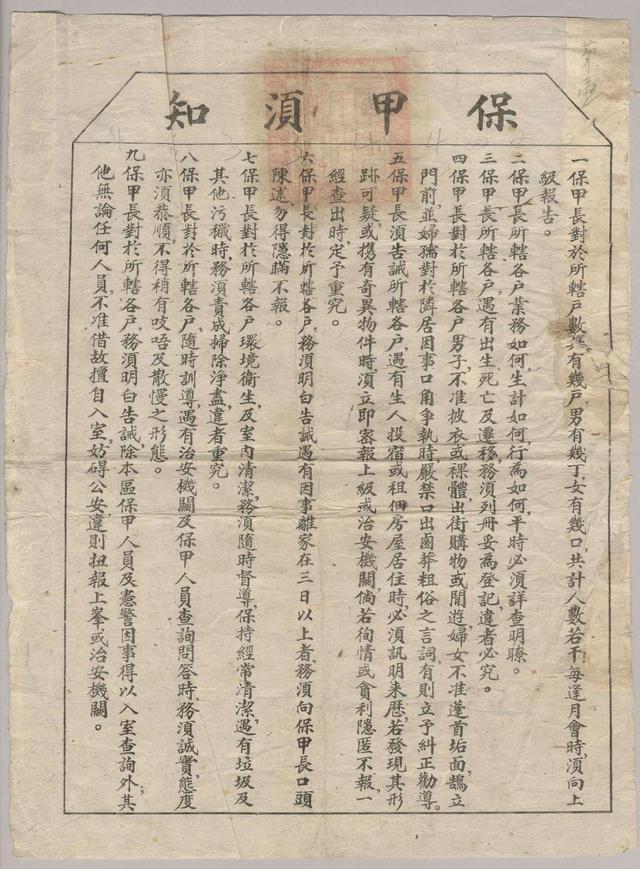 保甲須知
一保甲長對於所轄戶數共有幾戶男有幾丁女有幾口共計人數若干每逢月會時須向上
級報告。
二保甲長所轄各戶業務如何生計如何行為如何平時必須詳查明瞭。
三保甲長所轄各戶遇有出生死亡及遷移務須列冊妥為登記違者必究。
四保甲長對於所轄各戶男子不准披衣或裸體出街購物或閒遊婦女不准蓬首垢面鵠立
門前並婦孺對於隣居因事口角爭執時嚴禁口出鹵莽粗俗之言詞有則立予糾正勸導。
五保甲長須告誡所轄各戶遇有生人投宿或租佃房屋居住時必須訊明来歷若發現其形
跡可疑或携有奇異物件時須立即密報上級或治安機關倘若徇情或貪利隱匿不報一
經查出時定予重究。
六保甲長對於所轄各戶務須明白告誡遇有因事離家在三日以上者務須向保甲長口頭
陳述勿得隱瞞不報。
七保甲長對於所轄各戶環境衛生及室內清潔務須隨時督導保持經常清潔遇有垃圾及
其他污穢時務須責成掃除淨盡違者重究。
八保甲長對於所轄各戶隨時訓導遇有治安機關及保甲人員查詢問答時務須誠實態度
亦須恭順不得稍有吱唔及散慢之形態。
九保甲長對於所轄各戶務須明白告誡除本區保甲人員及憲警因事得以入室查詢外其
他無論任何人員不准借故擅自入室妨碍公安違則扭報上峯或治安機關。